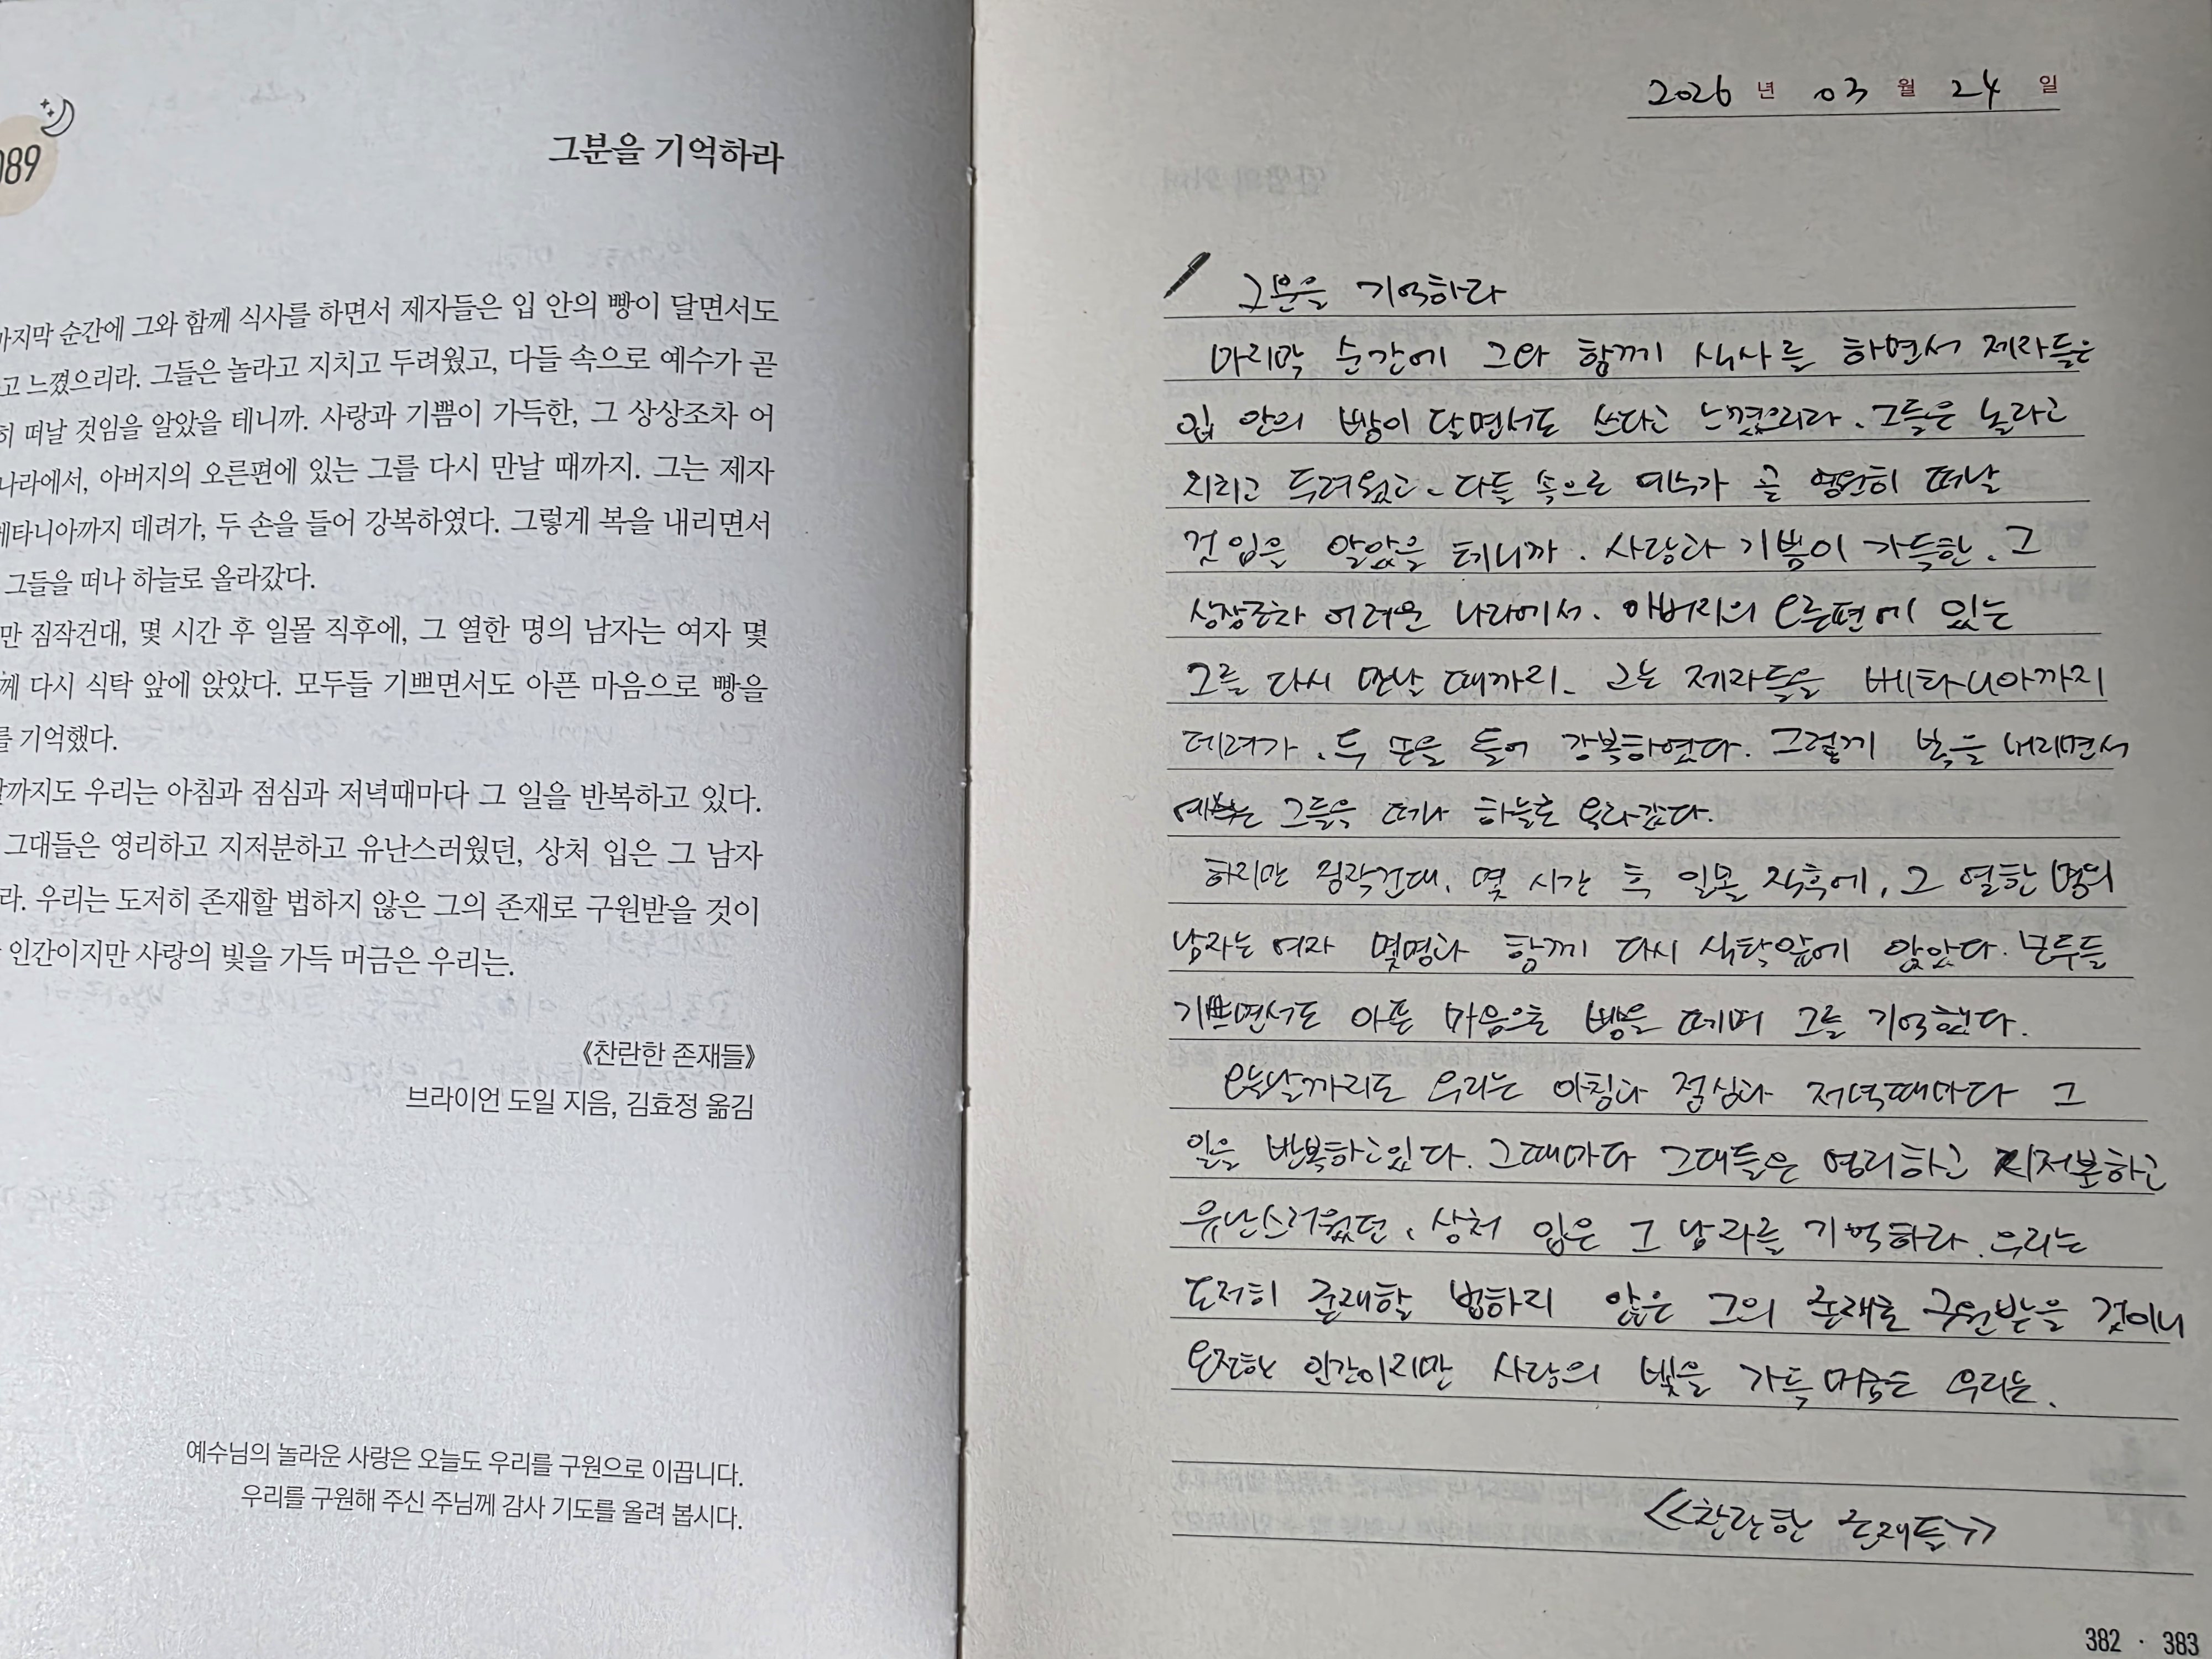 089
그분을 기억하라
마지막 순간에 그와 함께 식사를 하면서 제자들은 입 안의 빵이 달면서도
고 느꼈으리라. 그들은 놀라고 지치고 두려웠고, 다들 속으로 예수가 곧
히 떠날 것임을 알았을 테니까. 사랑과 기쁨이 가득한, 그 상상조차 어
나라에서, 아버지의 오른편에 있는 그를 다시 만날 때까지. 그는 제자
베타니아까지 데려가, 두 손을 들어 강복하였다. 그렇게 복을 내리면서
그들을 떠나 하늘로 올라갔다.
만 짐작건대, 몇 시간 후 일몰 직후에, 그 열한 명의 남자는 여자 몇
께 다시 식탁 앞에 앉았다. 모두들 기쁘면서도 아픈 마음으로 빵을
를 기억했다.
날까지도 우리는 아침과 점심과 저녁때마다 그 일을 반복하고 있다.
그대들은 영리하고 지저분하고 유난스러웠던, 상처 입은 그 남자
라. 우리는 도저히 존재할 법하지 않은 그의 존재로 구원받을 것이
인간이지만 사랑의 빛을 가득 머금은 우리는.
《찬란한 존재들》
브라이언 도일 지음, 김효정 옮김
예수님의 놀라운 사랑은 오늘도 우리를 구원으로 이끕니다.
우리를 구원해 주신 주님께 감사 기도를 올려 봅시다.
2026 년 03 월 24 일
그분을 기억하라
마지막 순간에 그와 함께 식사를 하면서 제자들은
입 안의 빵이 달면서도 쓰다고 느꼈으리라. 그들은 놀라고
지치고 두려웠고, 다들 속으로 예수가 곧 영원히 떠날
것임을 알았을 테니까. 사랑과 기쁨이 가득한, 그
상상조차 어려운 나라에서. 아버지의 오른편에 있는
그를 다시 만날 때까지. 그는 제자들을 베타니아까지
데려가, 두 손을 들어 강복하였다. 그렇게 복을 내리면서
예수는 그들을 떠나 하늘로 올라갔다.
하지만 짐작건대, 몇 시간 후 일몰 직후에, 그 열한 명의
남자는 여자 몇명과 함께 다시 식탁앞에 앉았다. 모두들
기쁘면서도 아픈 마음으로 빵을 떼며 그를 기억했다.
오늘날까지도 우리는 아침과 점심과 저녁때마다 그
일을 반복하고있다. 그때마다 그대들은 영리하고 지저분하고
유난스러웠던, 상처 입은 그 남자를 기억하라. 우리는
도저히 존재할 법하지 않은 그의 존재로 구원받을 것이니
인간이지만 사랑의 빛을 가득 머금은 우리는.
<<찬란한 존재들>>
382 · 383